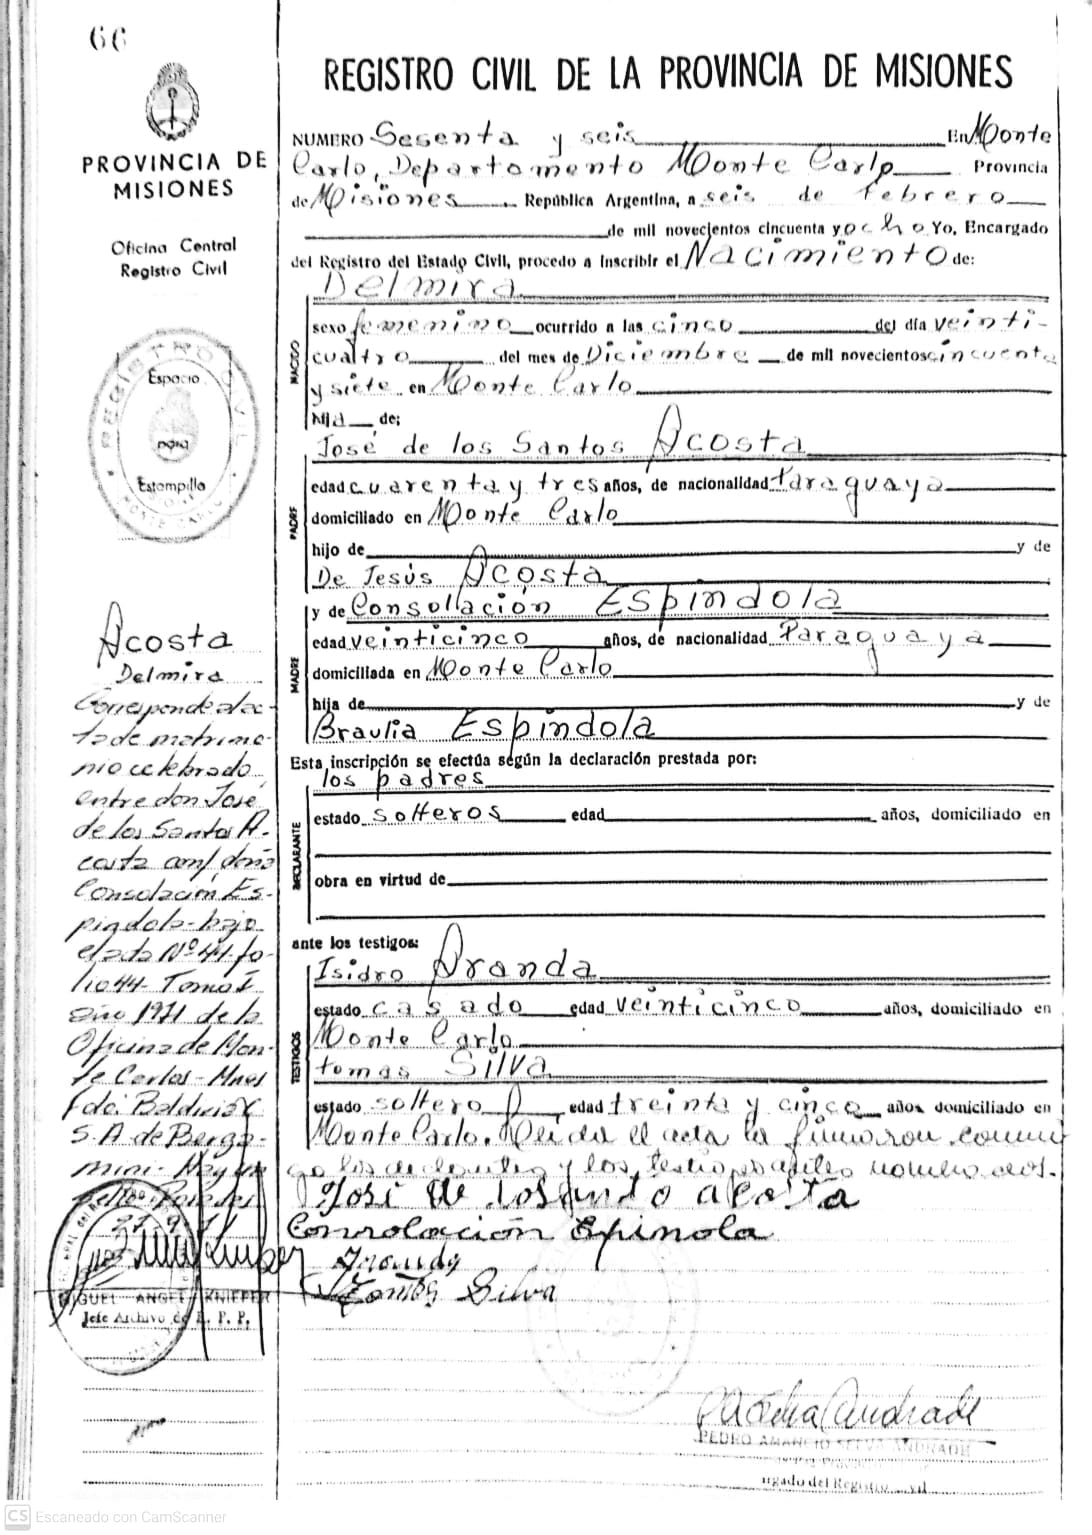 66
PROVINCIA DE
MISIONES
Oficina Central
Registro Civil
REGISTRO CIVIL
Espacio
para
Estampilla
MONTE CARLO
Acosta
Delmira
Corresponde al ac-
ta de matrimo-
nio celebrado
entre don José
de los Santos A-
costa con doña
Consolación Es-
pindola- bajo
el acta Nº 44- fo-
lio 44- Tomo I
año 1971 de la
Oficina de Mon-
te Carlos- Mnes
Fdo: Baldwis
S. A. de Berga-
mini-
27-9-71
MIGUEL ANGEL KNIEPER
Jefe Archivo de R. P. P.
REGISTRO CIVIL DE LA PROVINCIA DE MISIONES
NUMERO Sesenta y seis En Monte
Carlo, Departamento Monte Carlo Provincia
de Misiones República Argentina, a seis de febrero
de mil novecientos cincuenta y ocho Yo, Encargado
del Registro del Estado Civil, procedo a inscribir el Nacimiento de:
Delmira
NACIDO
sexo femenino ocurrido a las cinco del día veinti-
cuatro del mes de Diciembre de mil novecientos cincuenta
y siete en Monte Carlo
hija de:
José de los Santos Acosta
PADRE
edad cuarenta y tres años, de nacionalidad Paraguaya
domiciliado en Monte Carlo
hijo de y de
De Jesús Acosta
y de Consolación Espindola
MADRE
edad veinticinco años, de nacionalidad Paraguaya
domiciliada en Monte Carlo
hija de y de
Braulia Espindola
Esta inscripción se efectúa según la declaración prestada por:
los padres
DECLARANTE
estado solteros edad años, domiciliado en
obra en virtud de
ante los testigos:
Isidro Aranda
TESTIGOS
estado casado edad veinticinco años, domiciliado en
Monte Carlo
tomas Silva
estado soltero edad treinta y cinco años domiciliado en
Monte Carlo. Leída el acta la firmaron conmi
go los declarantes y los testigos antes nombrados.
José de los santo acosta
Consolación Espinola
Aranda
Tomás Silva
PEDRO AMANCIO SELVA ANDRADE
Escaneado con CamScanner